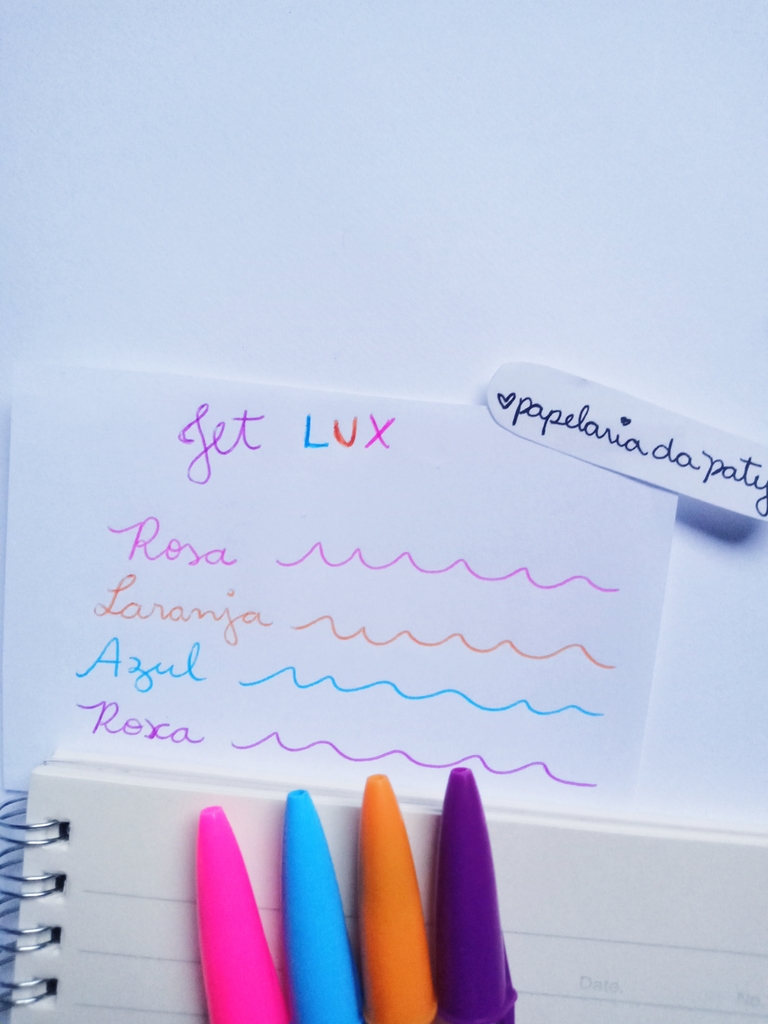 Jet LUX
papelaria da paty
Rosa
Laranja
Azul
Roxa
Date.
No.